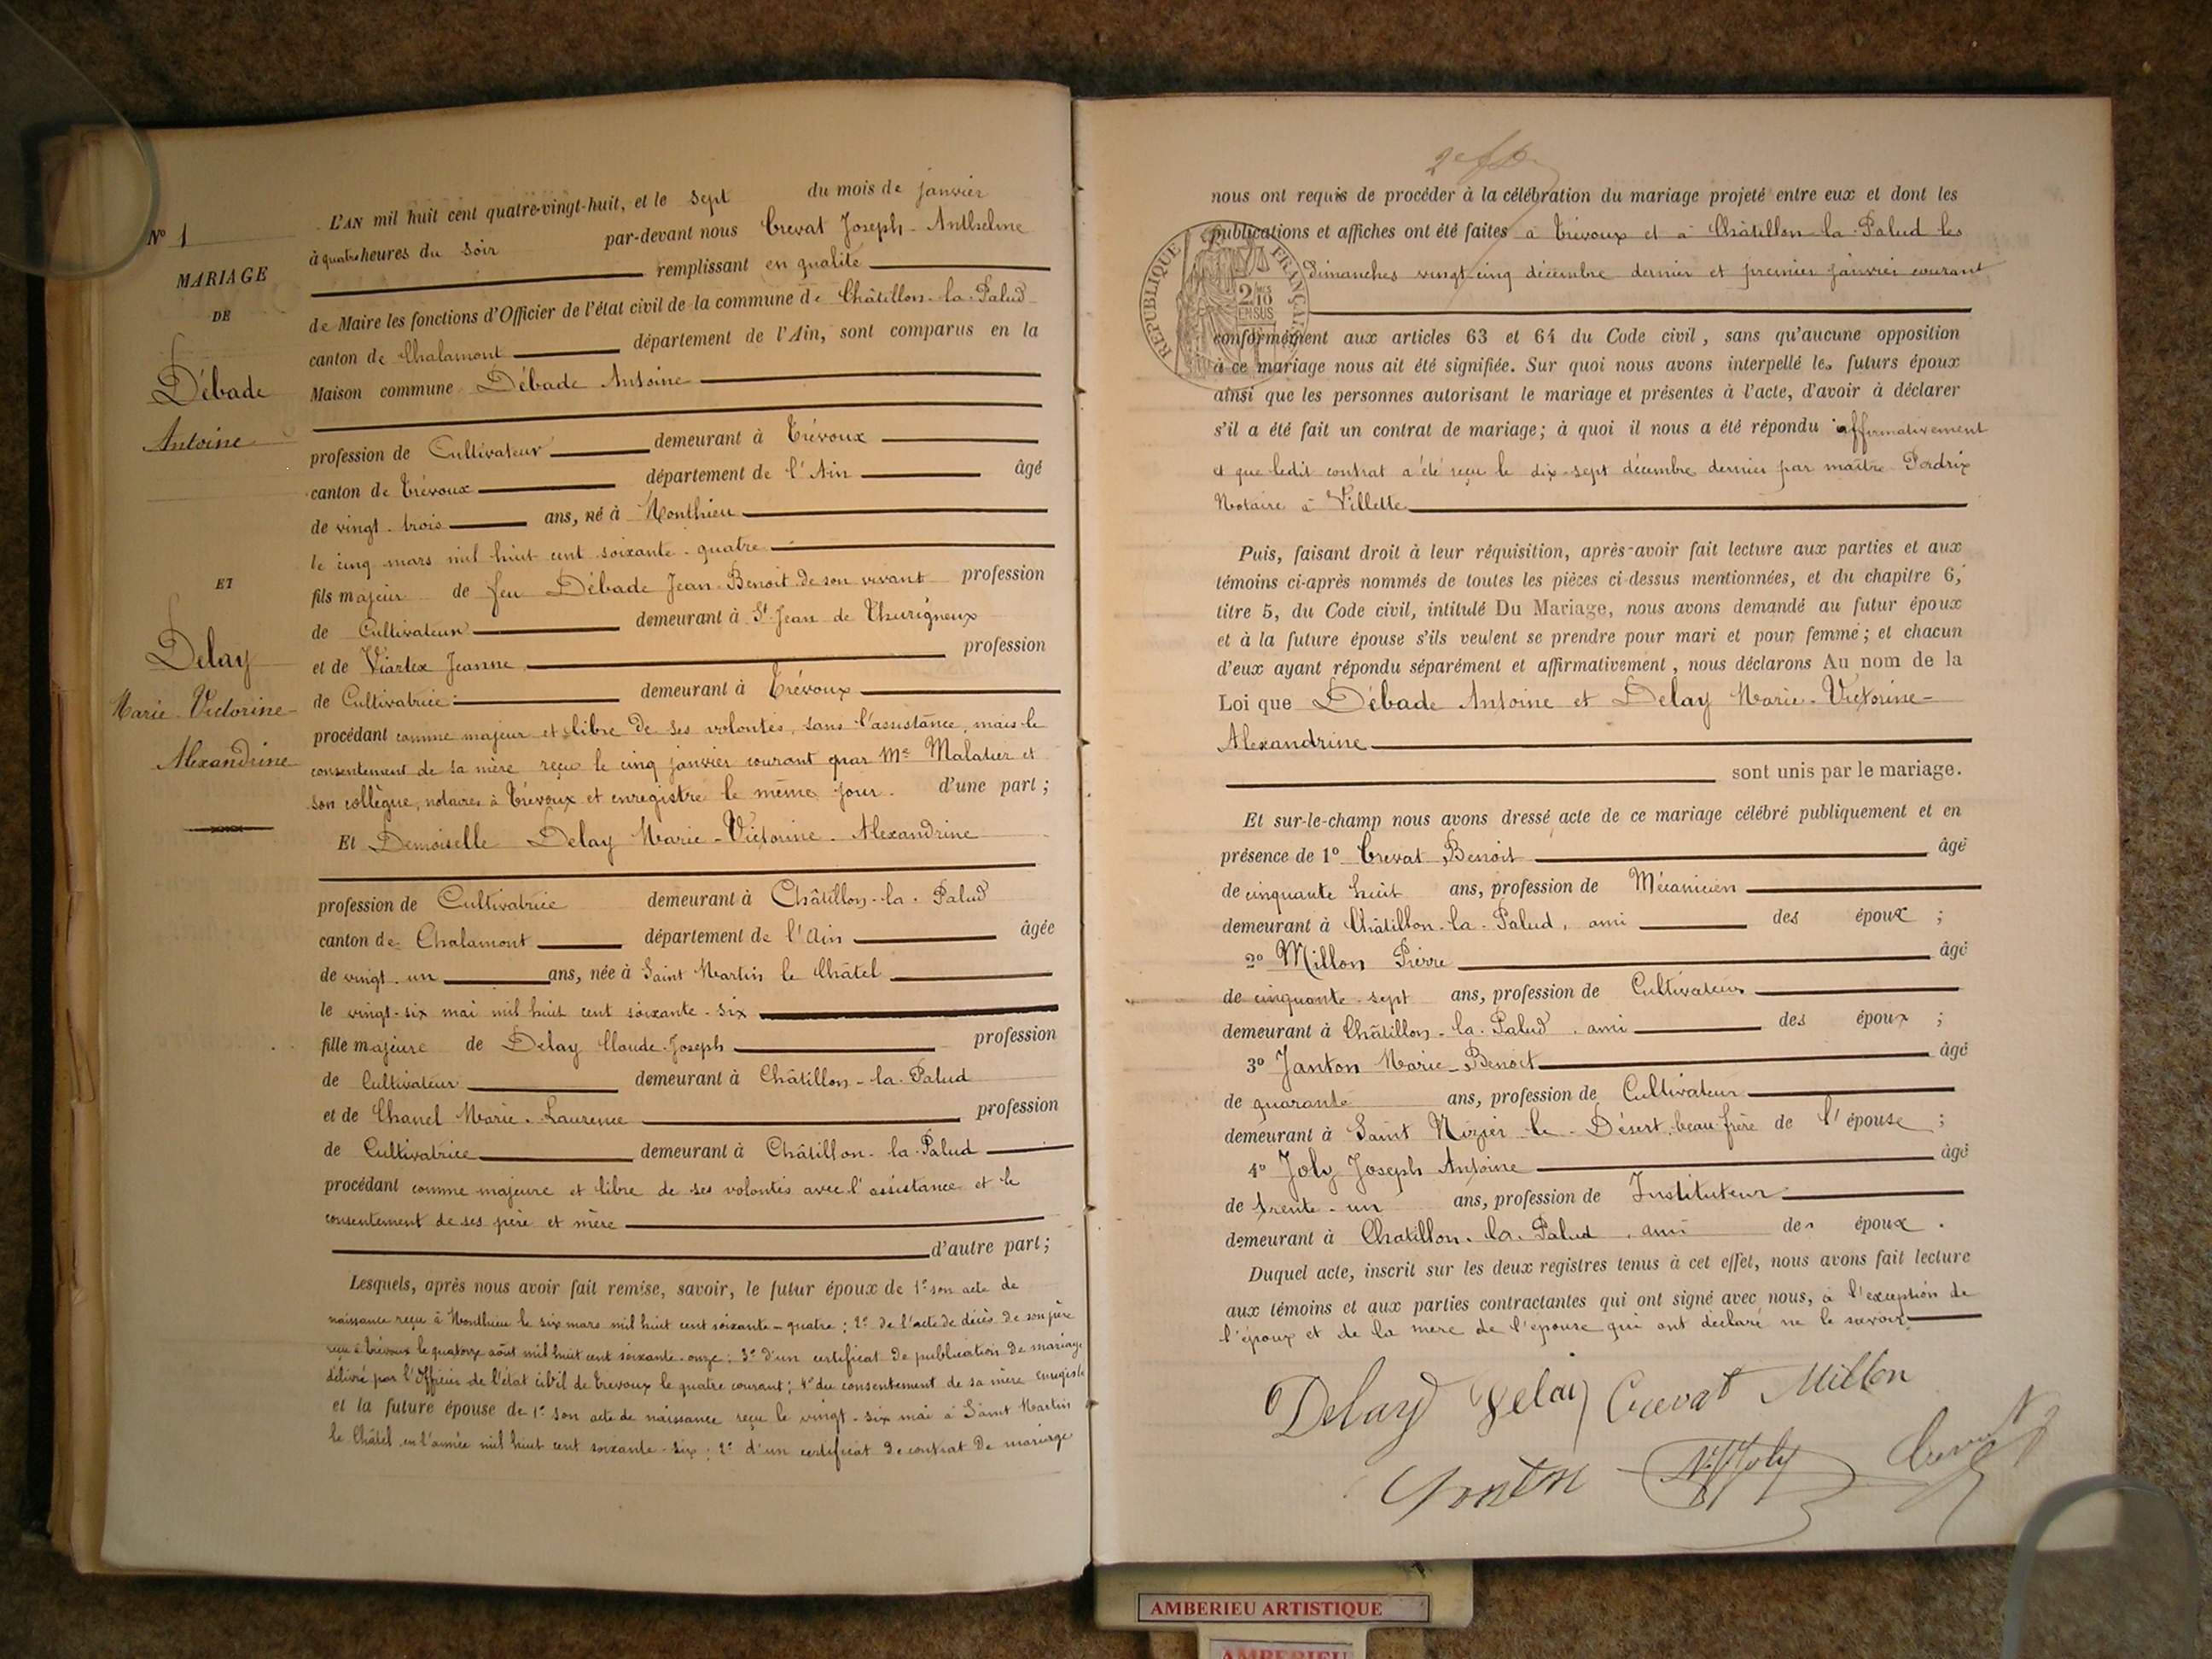 N° 1
MARIAGE
DE
Débade
Antoine
ET
Delay
Marie-Victorine-
Alexandrine
L'AN mil huit cent quatre-vingt-huit, et le sept du mois de janvier
à quatre heures du soir par-devant nous Crevat Joseph-Anthelme
remplissant en qualité
de Maire les fonctions d'Officier de l'état civil de la commune de Châtillon-la-Palud
canton de Chalamont département de l'Ain, sont comparus en la
Maison commune Débade Antoine
profession de Cultivateur demeurant à Trévoux
canton de Trévoux département de l'Ain âgé
de vingt-trois ans, né à Monthieu
le cinq mars mil huit cent soixante-quatre
fils majeur de feu Débade Jean-Benoit de son vivant profession
de Cultivateur demeurant à St Jean de Thurigneux
et de Viartex Jeanne profession
de Cultivatrice demeurant à Trévoux
procédant comme majeur et libre de ses volontés, sans l'assistance, mais le
consentement de sa mère reçu le cinq janvier courant par Me Malatier et
son collègue, notaires à Trévoux et enregistré le même jour. d'une part;
Et Demoiselle Delay Marie-Victorine-Alexandrine
profession de Cultivatrice demeurant à Châtillon-la-Palud
canton de Chalamont département de l'Ain âgée
de vingt-un ans, née à Saint Martin le Châtel
le vingt-six mai mil huit cent soixante-six
fille majeure de Delay Claude-Joseph profession
de Cultivateur demeurant à Châtillon-la-Palud
et de Chanel Marie-Laurence profession
de Cultivatrice demeurant à Châtillon-la-Palud
procédant comme majeure et libre de ses volontés avec l'assistance et le
consentement de ses père et mère
d'autre part;
Lesquels, après nous avoir fait remise, savoir, le futur époux de 1° son acte de
naissance reçu à Monthieu le six mars mil huit cent soixante-quatre; 2° de l'acte de décès de son père
reçu à Trévoux le quatorze août mil huit cent soixante-onze; 3° d'un certificat de publication de mariage
délivré par l'Officier de l'état civil de Trévoux le quatre courant; 4° du consentement de sa mère enregistré
et la future épouse de 1° son acte de naissance reçu le vingt-six mai à Saint Martin
le Châtel en l'année mil huit cent soixante-six; 2° d'un certificat de contrat de mariage
nous ont requis de procéder à la célébration du mariage projeté entre eux et dont les
publications et affiches ont été faites à Trévoux et à Châtillon-la-Palud les
dimanches vingt cinq décembre dernier et premier janvier courant
RÉPUBLIQUE FRANÇAISE
2/10
EN SUS
conformément aux articles 63 et 64 du Code civil, sans qu'aucune opposition
à ce mariage nous ait été signifiée. Sur quoi nous avons interpellé les futurs époux
ainsi que les personnes autorisant le mariage et présentes à l'acte, d'avoir à déclarer
s'il a été fait un contrat de mariage; à quoi il nous a été répondu affirmativement
et que ledit contrat a été reçu le dix-sept décembre dernier par maître Perdrix
Notaire à Villette
Puis, faisant droit à leur réquisition, après-avoir fait lecture aux parties et aux
témoins ci-après nommés de toutes les pièces ci-dessus mentionnées, et du chapitre 6,
titre 5, du Code civil, intitulé Du Mariage, nous avons demandé au futur époux
et à la future épouse s'ils veulent se prendre pour mari et pour femme; et chacun
d'eux ayant répondu séparément et affirmativement, nous déclarons Au nom de la
Loi que Débade Antoine et Delay Marie-Victorine-
Alexandrine
sont unis par le mariage.
Et sur-le-champ nous avons dressé acte de ce mariage célébré publiquement et en
présence de 1° Crevat Benoit âgé
de cinquante huit ans, profession de Mécanicien
demeurant à Châtillon-la-Palud, ami des époux;
2° Millon Pierre âgé
de cinquante-sept ans, profession de Cultivateur
demeurant à Châtillon-la-Palud, ami des époux;
3° Janton Marie-Benoit âgé
de quarante ans, profession de Cultivateur
demeurant à Saint Nizier-le-Désert, beau-frère de l'épouse;
4° Joly Joseph Antoine âgé
de trente-un ans, profession de Instituteur
demeurant à Chatillon-la-Palud, ami des époux.
Duquel acte, inscrit sur les deux registres tenus à cet effet, nous avons fait lecture
aux témoins et aux parties contractantes qui ont signé avec nous, à l'exception de
l'époux et de la mère de l'épouse qui ont déclaré ne le savoir
Delay Delay Crevat Millon
Janton Joly Crevat
AMBERIEU ARTISTIQUE
AMBERIEU